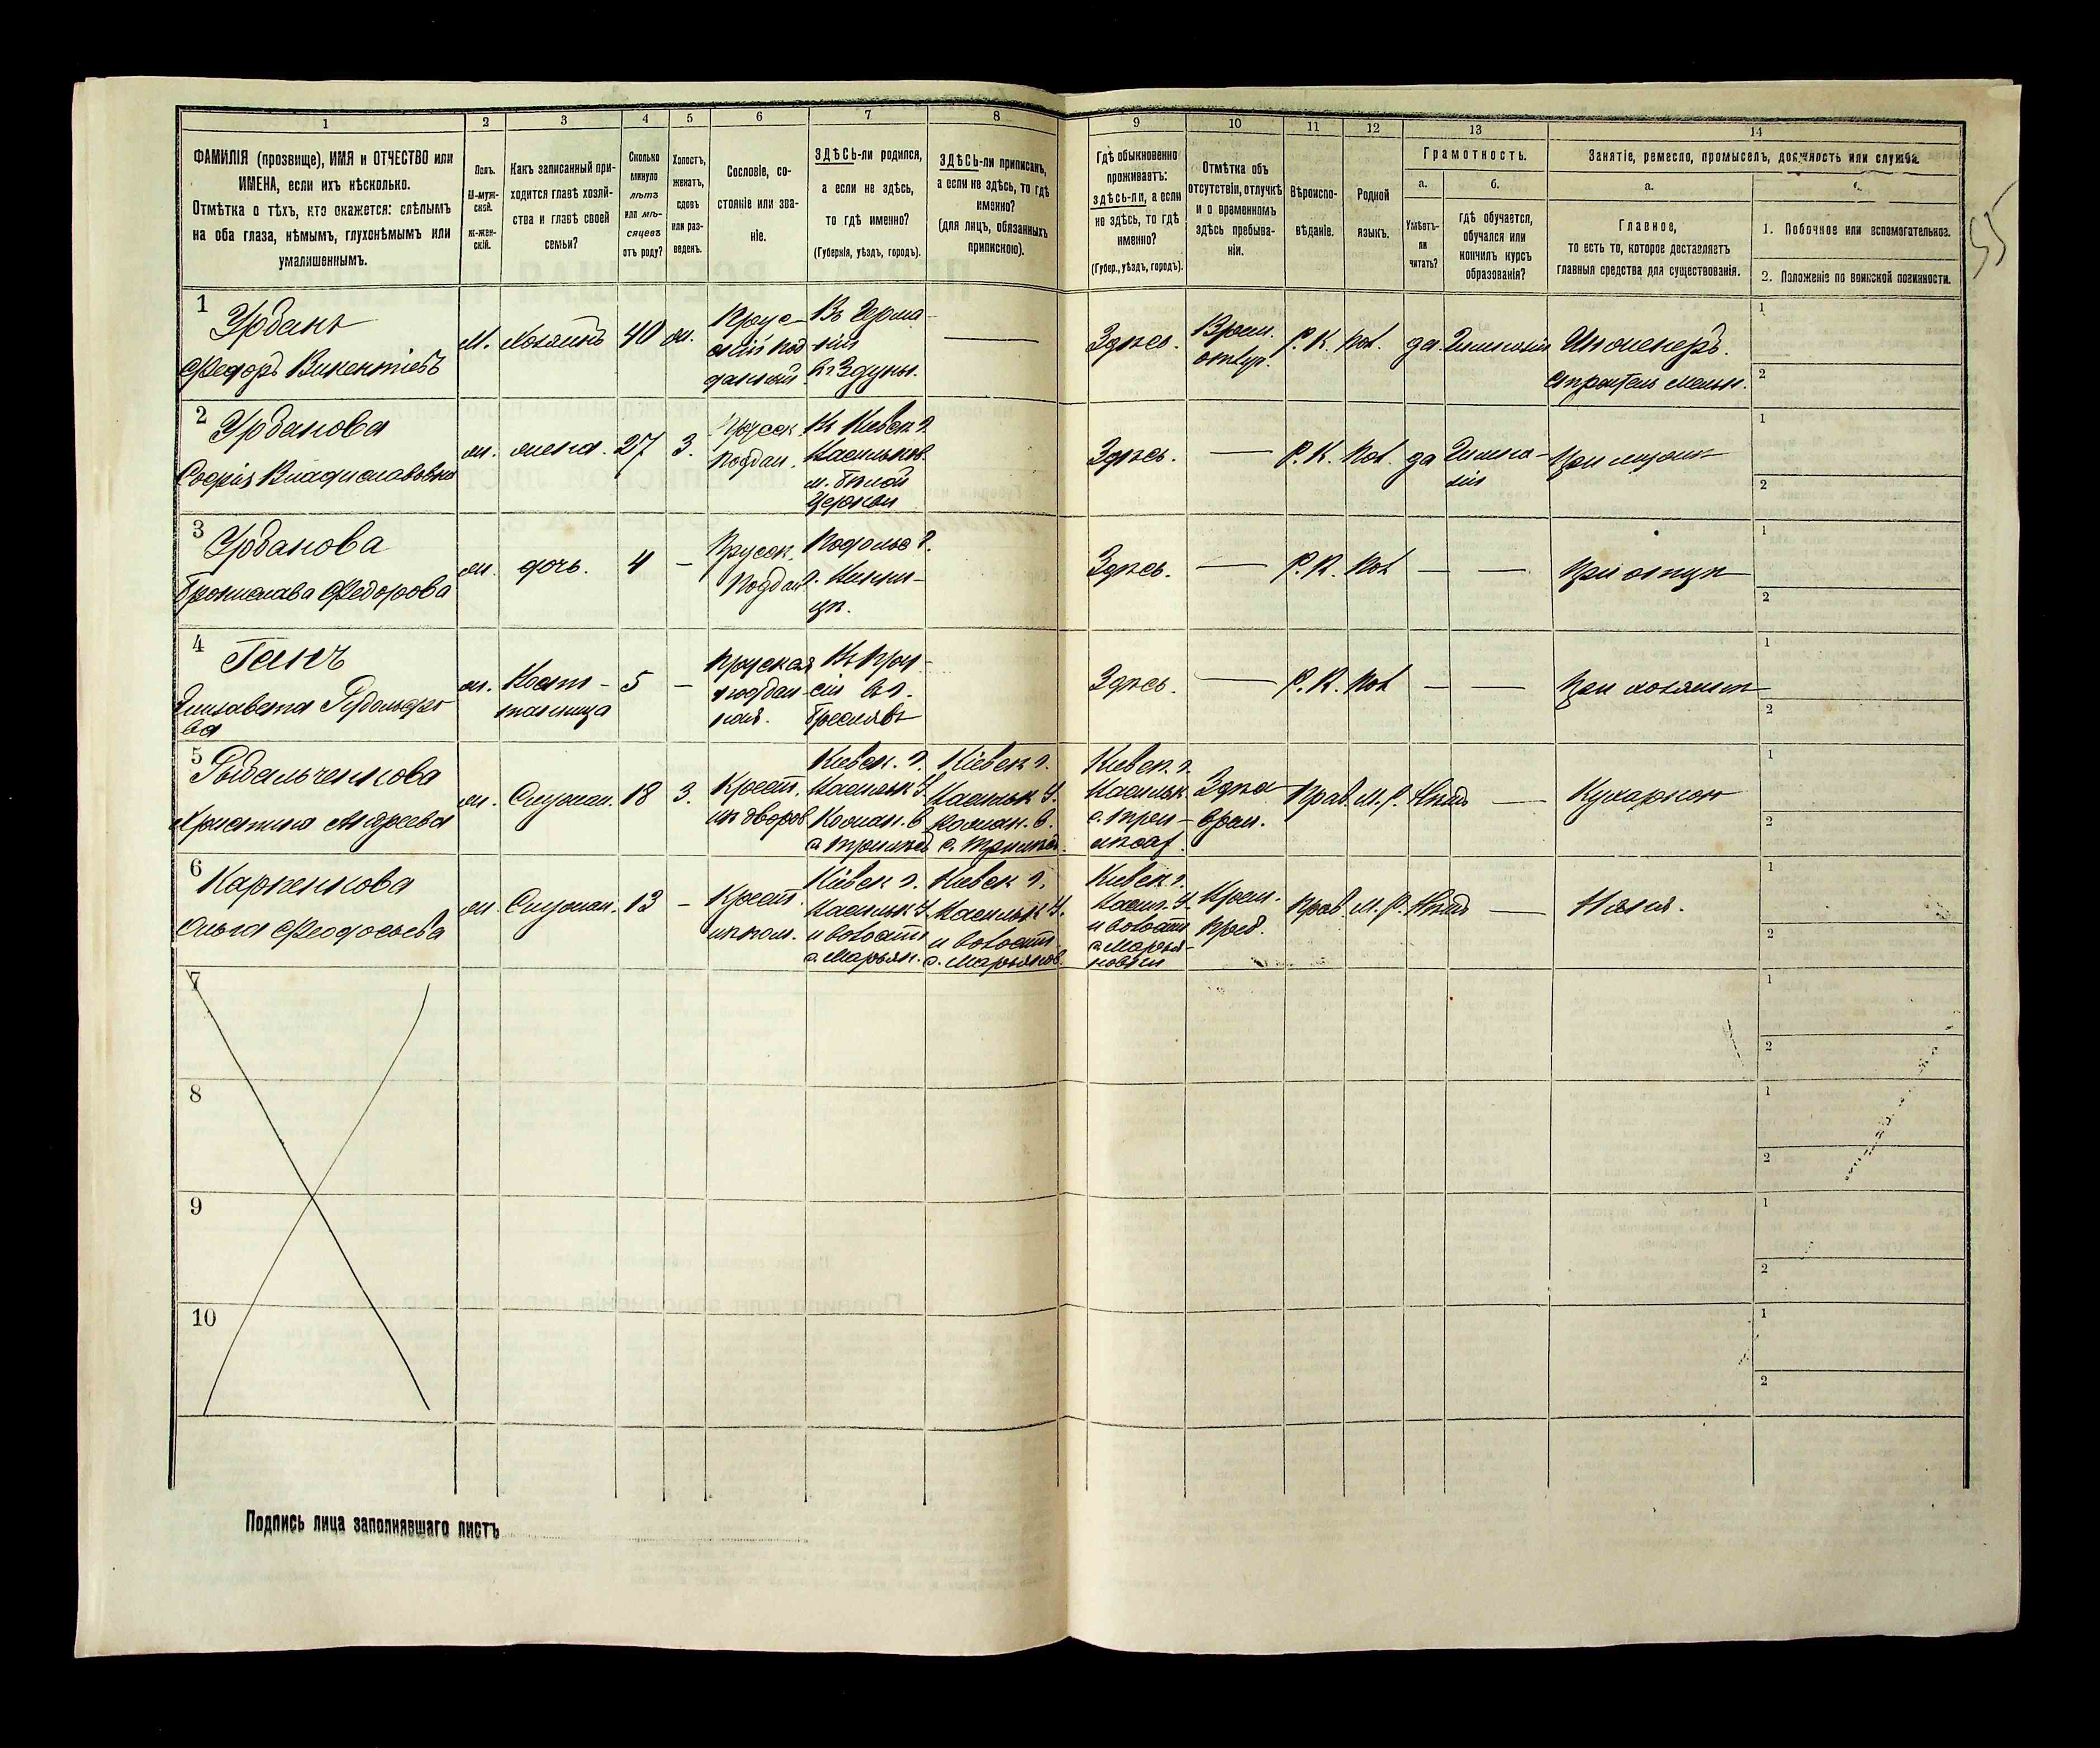 1 2 3 4 5 6 7 8 9 10 11 12 13 14
ФАМИЛІЯ (прозвище), ИМЯ и ОТЧЕСТВО или
ИМЕНА, если ихъ нѣсколько.
Отмѣтка о тѣхъ, кто окажется: слѣпымъ
на оба глаза, нѣмымъ, глухонѣмымъ или
умалишеннымъ.
Полъ.
М-муж-
ской.
Ж-жен-
скій.
Какъ записанный при-
ходится главѣ хозяй-
ства и главѣ своей
семьи?
Сколько
минуло
лѣтъ
или мѣ-
сяцевъ
отъ роду?
Холостъ,
женатъ,
вдовъ
или раз-
веденъ.
Сословіе, со-
стояніе или зва-
ніе.
ЗДѢСЬ-ли родился,
а если не здѣсь,
то гдѣ именно?
(Губернія, уѣздъ, городъ).
ЗДѢСЬ-ли приписанъ,
а если не здѣсь, то гдѣ
именно?
(для лицъ, обязанныхъ
припискою).
Гдѣ обыкновенно
проживаетъ:
здѣсь-ли, а если
не здѣсь, то гдѣ
именно?
(Губер., уѣздъ, городъ).
Отмѣтка объ
отсутствіи, отлучкѣ
и о временномъ
здѣсь пребыва-
ніи.
Вѣроиспо-
вѣданіе.
Родной
языкъ.
Грамотность.
а.
Умѣетъ-
ли
читать?
б.
гдѣ обучается,
обучался или
кончилъ курсъ
образованія?
Занятіе, ремесло, промыселъ, должность или служба.
а.
Главное,
то есть то, которое доставляетъ
главныя средства для существованія.
1. Побочное или вспомогательное.
2. Положеніе по воинской повинности.
55
1
Урбанъ
Федоръ Викентіевъ
М.
хозяинъ
40
ж.
Прус-
скій под
данный
Въ Герма-
ніи
Здѣсь.
Врем.
Р. К.
Пол.
да.
Гимназія
Инженеръ.
строитель мельн.
1
2
2
Урбанова
Софія Владиславовна
ж.
жена.
27
З.
Прусск.
Поддан.
Въ Киевск г.
Васильков.
м. Бѣлой
Церкви
Здѣсь.
Р. К.
Пол.
да
Гимна-
зія
При мужѣ
1
2
3
Урбанова
Бронислава Федорова
ж.
дочь.
4
Прусск.
Поддан
Подольс г.
Здѣсь.
Р. К.
Пол
При отцѣ
1
2
4
Ганъ
Елизавета Рудольфо
ва
ж.
Воспи-
танница
5
Прусская
поддан
ная.
Въ Прус-
сіи въ г.
Бреславѣ
Здѣсь.
Р. К.
Пол
При хозяинѣ
1
2
5
Рыбальченкова
Христина Андреева
ж.
Служан.
18
З.
Крест.
изъ дворов
Киевск. г.
Васильк У.
Киевск г.
Васильк У.
Киевск. г.
Васильк.
Здѣсь
врем.
Прав
М. Р.
Нѣтъ
Кухаркою
1
2
6
Карпенкова
Ольга Феодосьева
ж
Служан.
13
Крест.
Кіевск г.
Васильк У.
и волости
с. Марьян.
Киевск г.
Васильк У.
и волости
с. Марьянов.
Киевск г.
Васил. У
и волости
с. Марья-
новки
Врем.
преб.
Прав.
М. Р.
Нѣтъ
Няня.
1
2
7
1
2
8
1
2
9
1
2
10
1
2
Подпись лица заполнявшаго листъ